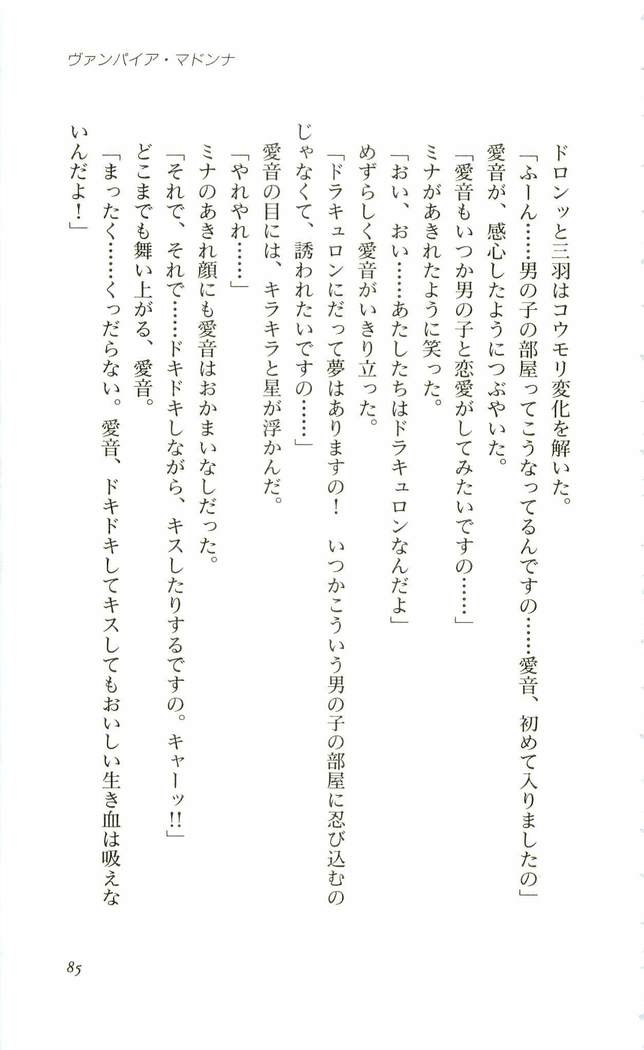 ヴァンパイア・マドンナ
ドロンッと三羽はコウモリ変化を解いた。
「ふーん……男の子の部屋ってこうなってるんですの……愛音、初めて入りましたの」
愛音が、感心したようにつぶやいた。
「愛音もいつか男の子と恋愛がしてみたいですの……」
ミナがあきれたように笑った。
「おい、おい……あたしたちはドラキュロンなんだよ」
めずらしく愛音がいきり立った。
「ドラキュロンにだって夢はありますの！　いつかこういう男の子の部屋に忍び込むの
じゃなくて、誘われたいですの……」
愛音の目には、キラキラと星が浮かんだ。
「やれやれ……」
ミナのあきれ顔にも愛音はおかまいなしだった。
「それで、それで……ドキドキしながら、キスしたりするですの。キャーッ!!」
どこまでも舞い上がる、愛音。
「まったく……くっだらない。愛音、ドキドキしてキスしてもおいしい生き血は吸えな
いんだよ！」
85